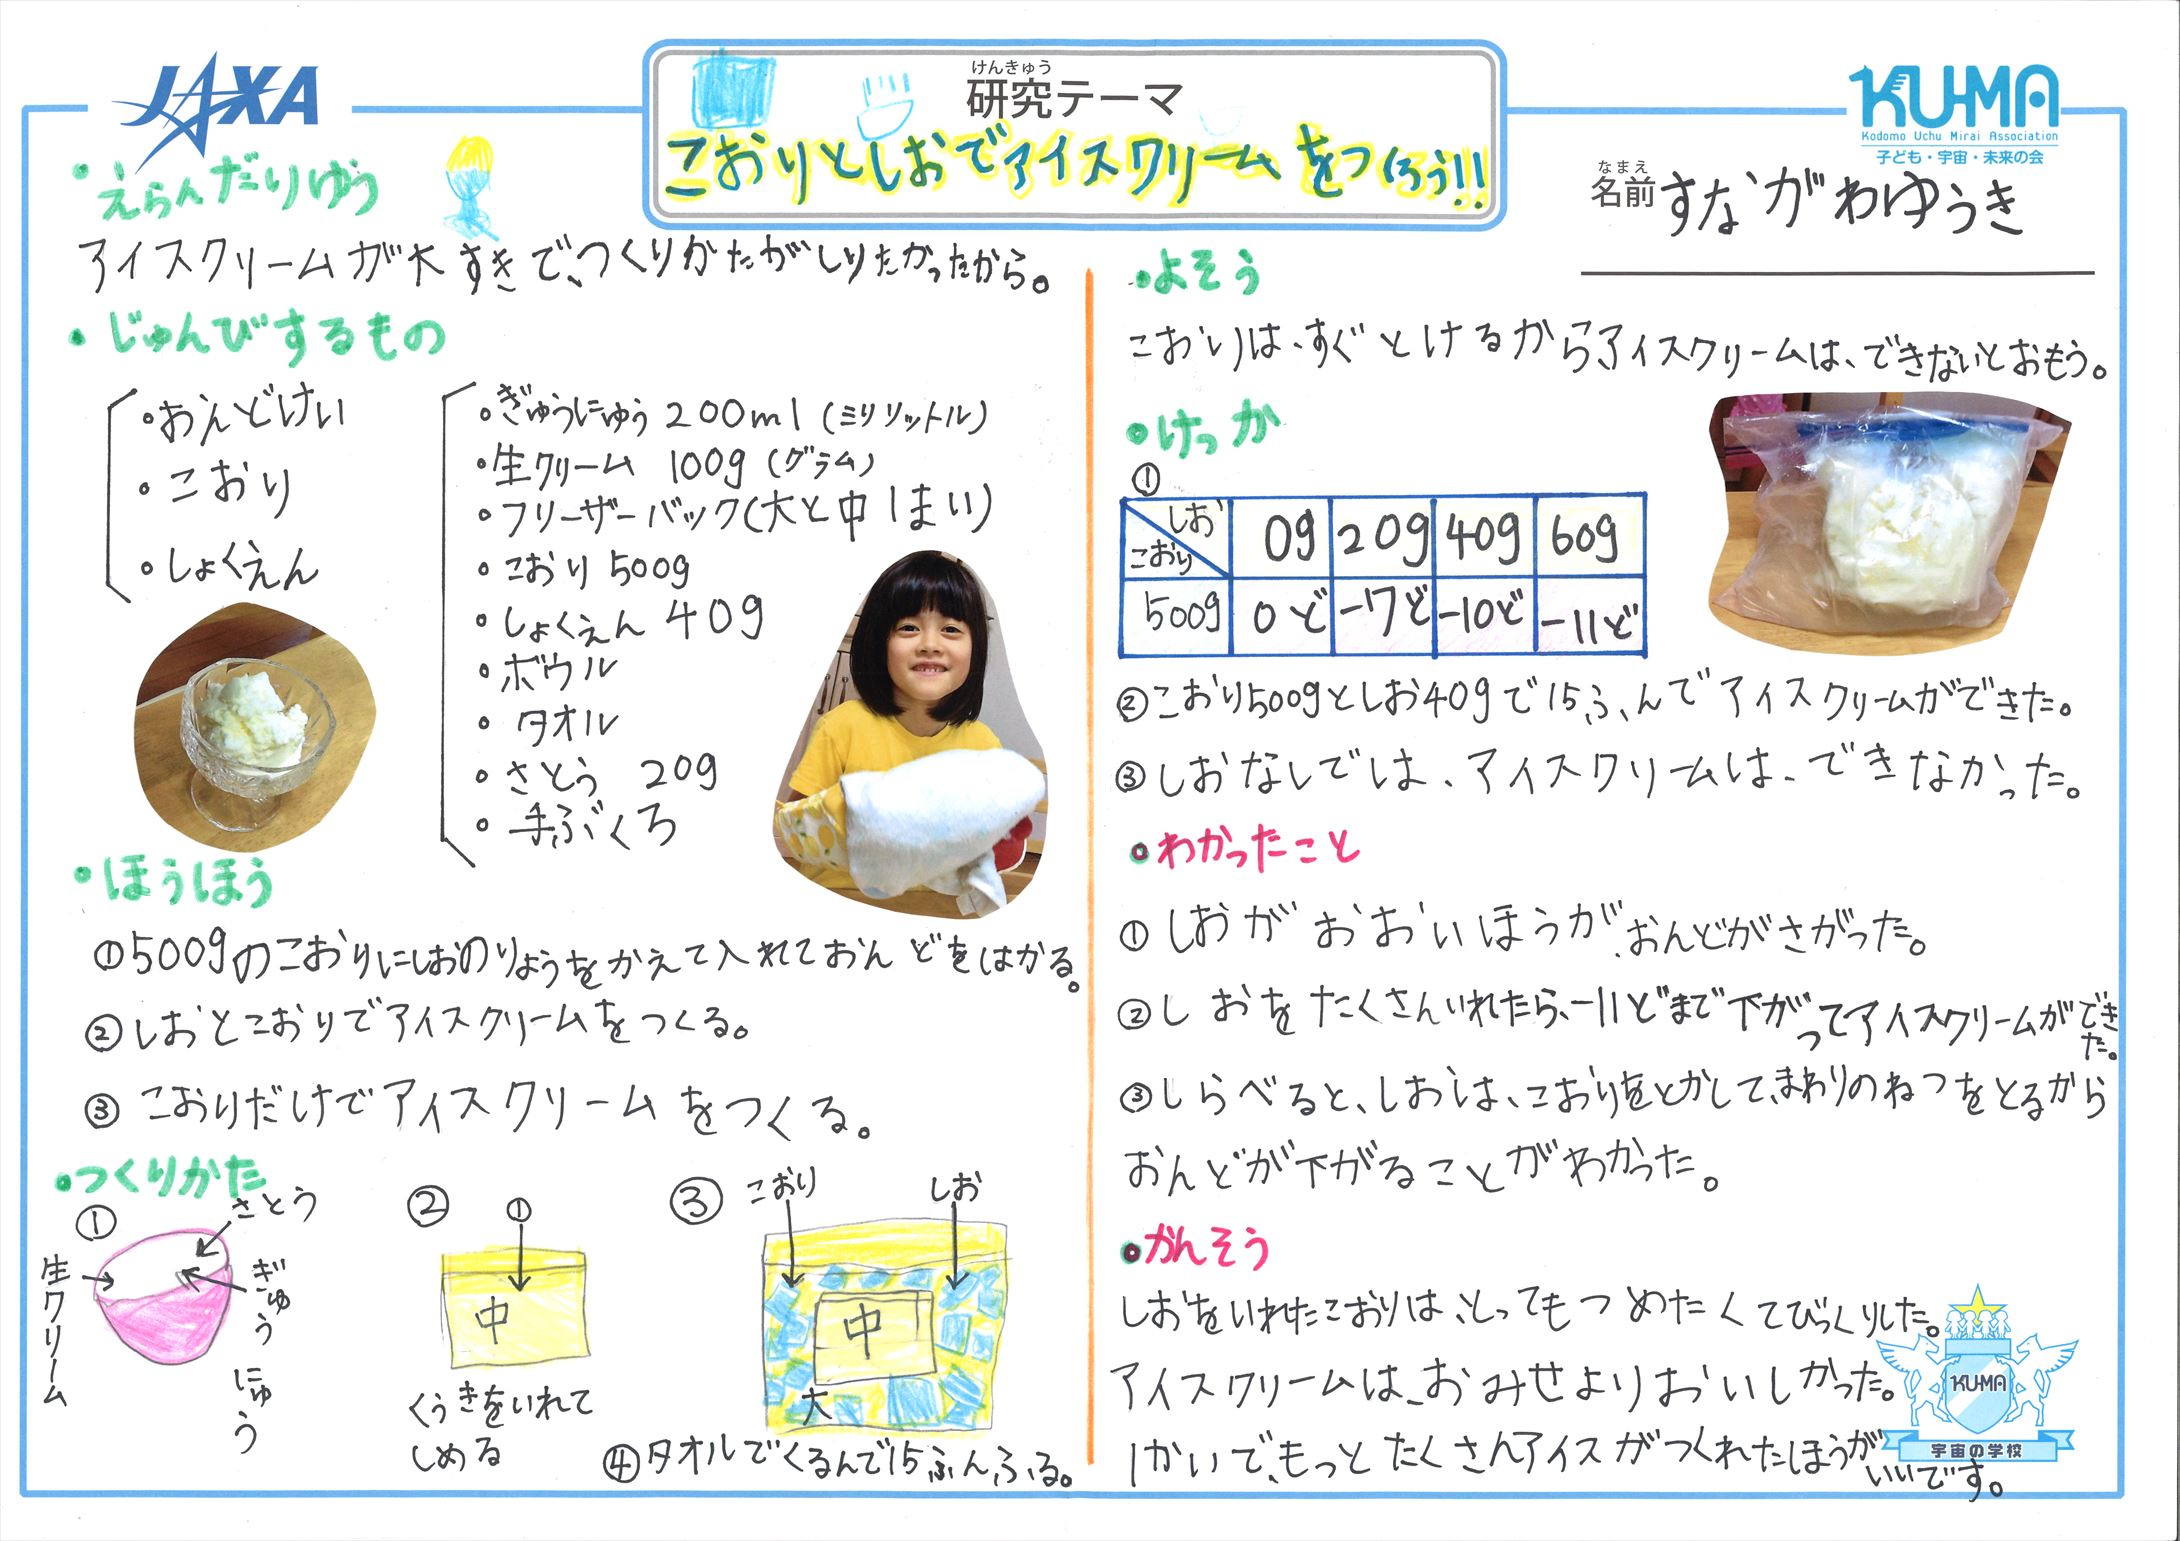 JAXA
けんきゅう
研究テーマ
こおりとしおでアイスクリームをつくろう!!
KU-MA
Kodomo Uchu Mirai Association
子ども・宇宙・未来の会
なまえ
名前 すながわゆうき
・えらんだりゆう
アイスクリームが大すきで、つくりかたがしりたかったから。
・じゅんびするもの
・おんどけい
・こおり
・しょくえん
・ぎゅうにゅう 200ml (ミリリットル)
・生クリーム 100g (グラム)
・フリーザーバック(大と中1まい)
・こおり 500g
・しょくえん 40g
・ボウル
・タオル
・さとう 20g
・手ぶくろ
・ほうほう
①500gのこおりにしおのりょうをかえて入れておんどをはかる。
②しおとこおりでアイスクリームをつくる。
③こおりだけでアイスクリームをつくる。
・つくりかた
①
さとう
生クリーム
ぎゅうにゅう
②
①
中
くうきをいれて
しめる
③
こおり
しお
中
大
④タオルでくるんで15ふんふる。
・よそう
こおりは、すぐとけるから、アイスクリームは、できないとおもう。
・けっか
①
しお 0g 20g 40g 60g
こおり
500g 0ど -7ど -10ど -11ど
②こおり500gとしお40gで15ふんでアイスクリームができた。
③しおなしでは、アイスクリームは、できなかった。
・わかったこと
①しおがおおいほうが、おんどがさがった。
②しおをたくさんいれたら、-11どまで下がってアイスクリームができた。
③しらべると、しおは、こおりをとかして、まわりのねつをとるから
おんどが下がることがわかった。
・かんそう
しおをいれたこおりは、とってもつめたくてびっくりした。
アイスクリームは、おみせよりおいしかった。
1かいで、もっとたくさんアイスがつくれたほうがいいです。
KU-MA
宇宙の学校